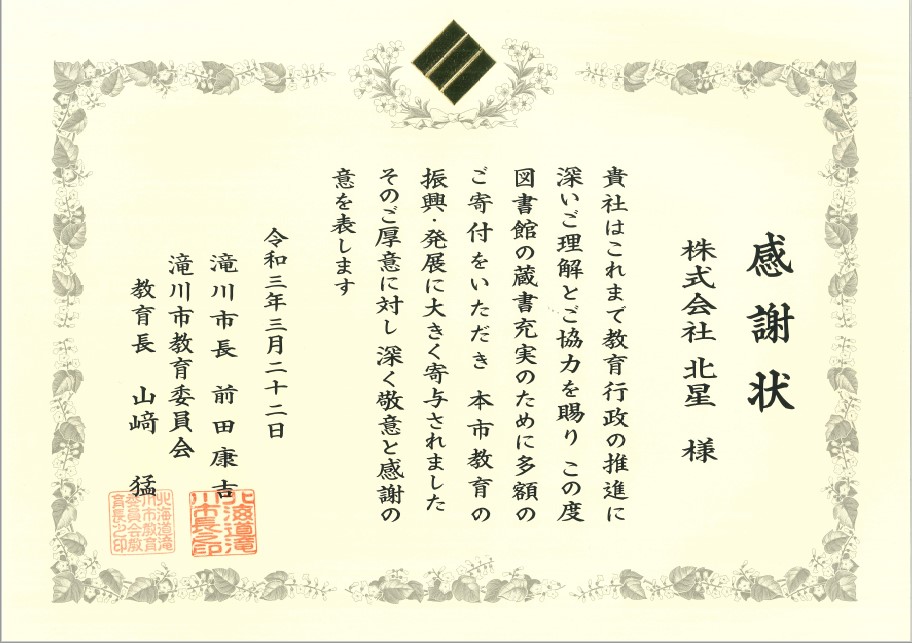 感謝状
株式会社 北星 様
貴社はこれまで教育行政の推進に
深いご理解とご協力を賜り この度
図書館の蔵書充実のために多額の
ご寄付をいただき 本市教育の
振興・発展に大きく寄与されました
そのご厚意に対し 深く敬意と感謝の
意を表します
令和三年三月二十二日
滝川市長 前田康吉
北海道滝
川市長之印
滝川市教育委員会
教育長 山﨑 猛
北海道滝
川市教育
委員会教
育長之印